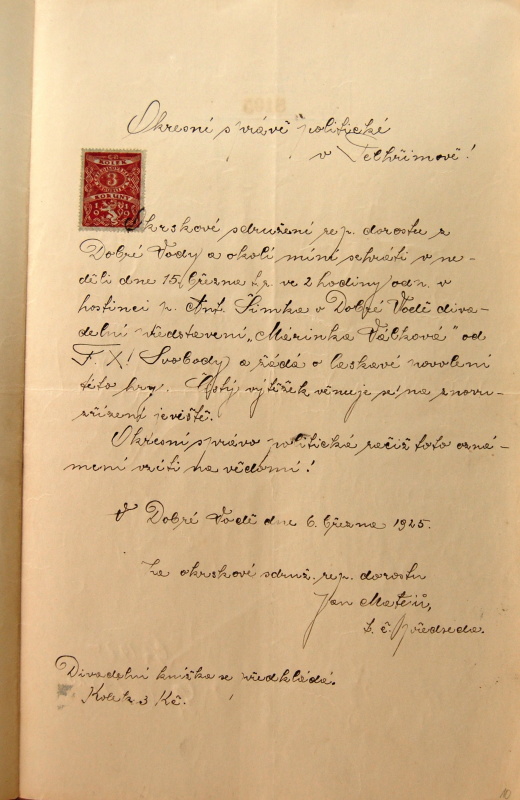 Okresní správě politické
v Pelhřimově!
KOLEK
3
KORUNY
Okrskové sdružení rep. dorostu z
Dobré Vody a okolí míní sehráti v ne-
děli dne 15. března t.r. ve 2 hodiny odp. v
hostinci p. Ant. Šimka v Dobré Vodě diva-
delní představení „Märinka Válková" od
F. X. Svobody a žádá o laskavé povolení
této hry. Čistý výtěžek věnuje se na znovu-
zřízení jeviště.
Okresní správo politická račiž toto ozná-
mení vzíti na vědomí!
V Dobré Vodě dne 6. března 1925.
Za okrskové sdruž. rep. dorostu
Jan Matějů,
t. č. předseda.
Divadelní knížka se předkládá.
Kolek 3 Kč.